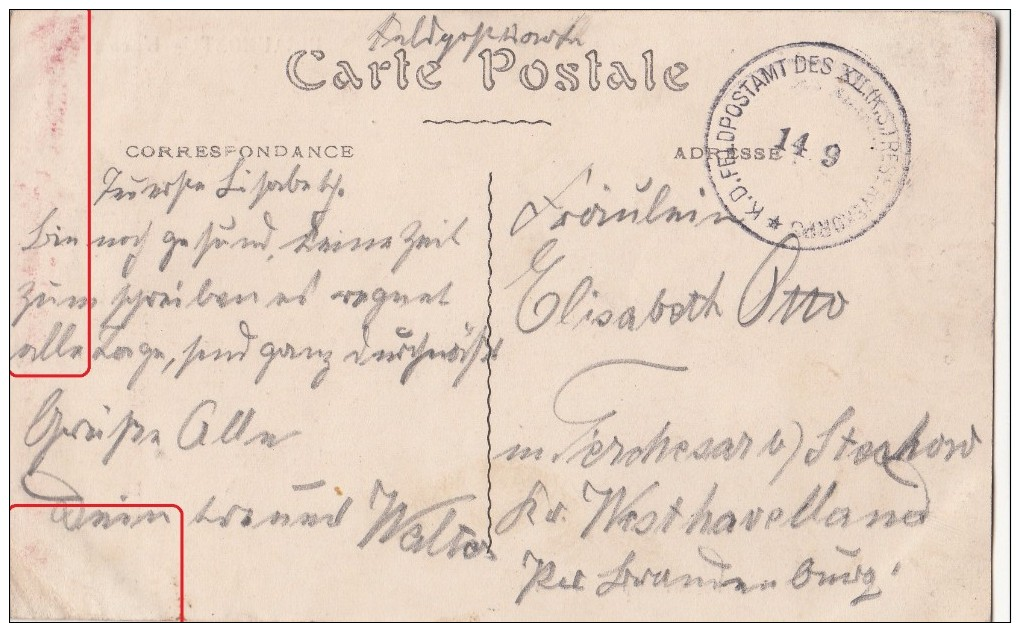 Feldpostkarte
Carte Postale
CORRESPONDANCE
ADRESSE
K.D. FELDPOSTAMT DES XII.(K.S.) RESERVEKORPS
14 9
Teuerste Lisabeth.
Bin noch gesund, keine Zeit
zum schreiben es regnet
alle Tage, sind ganz durchnäßt
Grüße Alle
Dein treuer Walter
Fräulein
Elisabeth Otto
in Ferchesar b) Stechow
Kr. Westhavelland
Per Brandenburg.